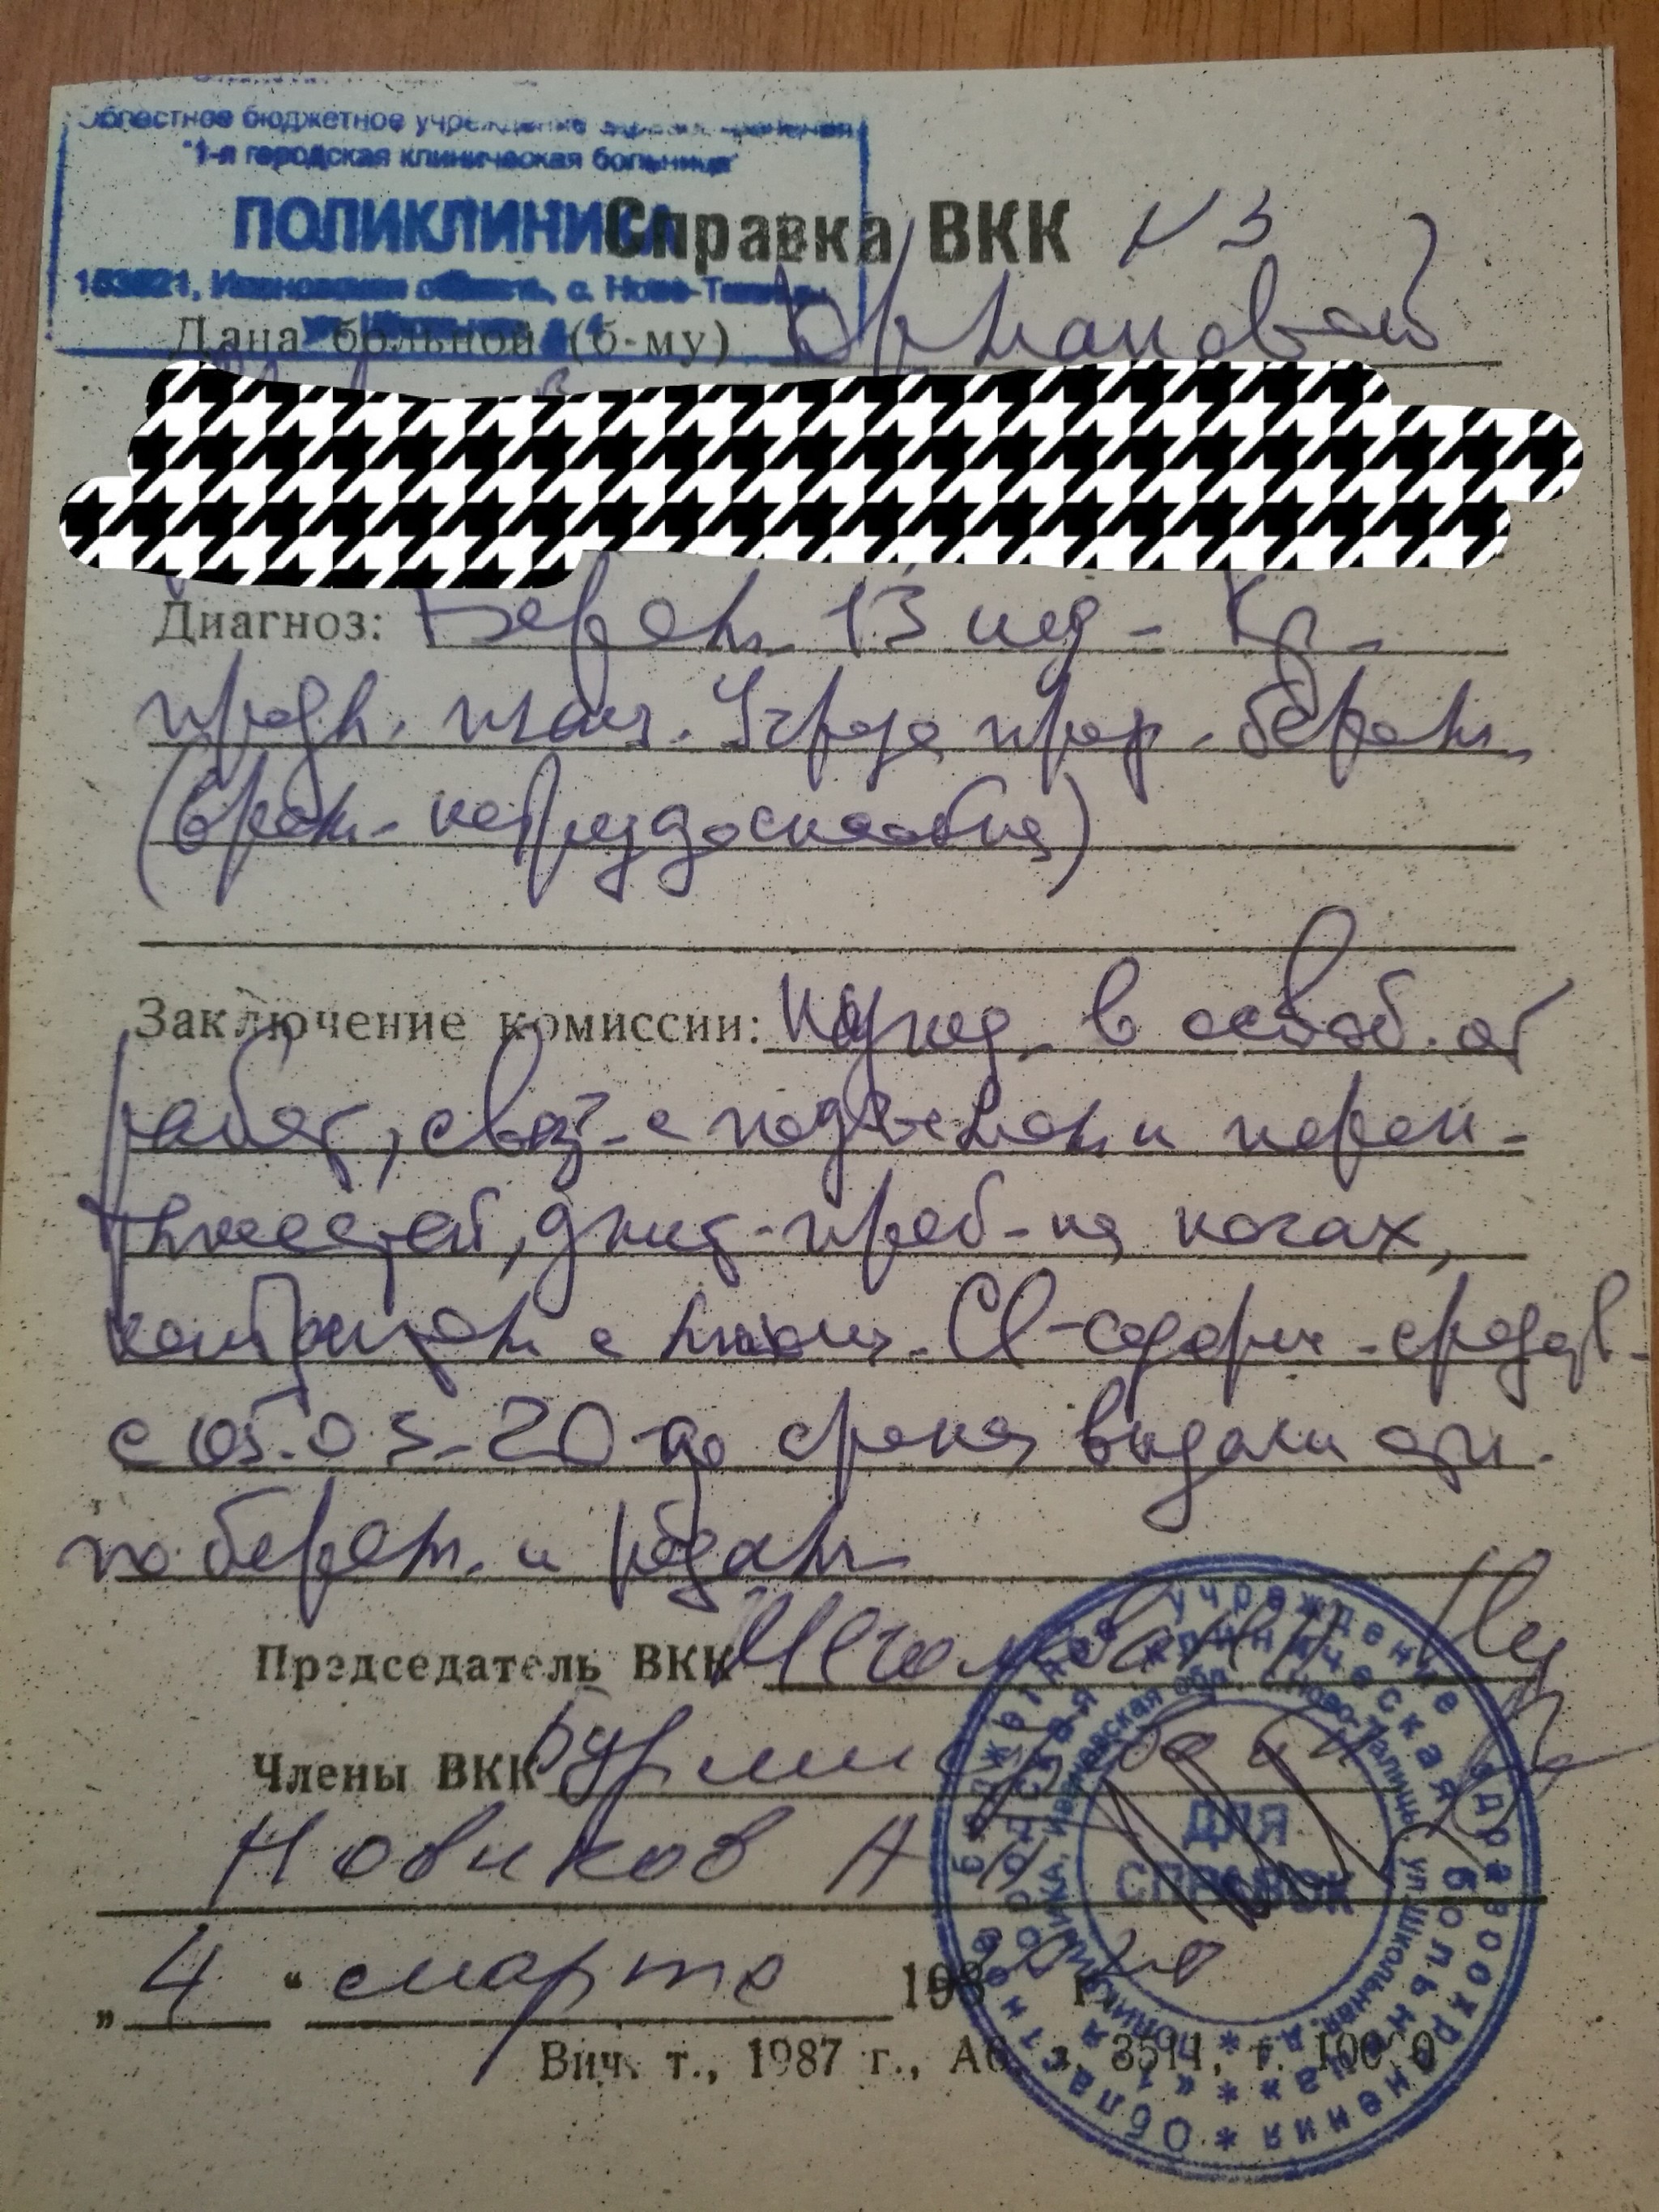 Областное бюджетное учреждение здравоохранения
"1-я городская клиническая больница"
ПОЛИКЛИНИКА
153521, Ивановская область, с. Ново-Талицы
Справка ВКК N 3
Дана больной (б-му)
Диагноз: Берем. 13 нед - Кр.
предл. плац. Угроза прер. берем.
(врем. нетрудоспособна)
Заключение комиссии: Нужд. в освоб. от
работ, связ. с подъемом и перем.
тяжестей, длит. преб. на ногах,
контактом с Cl-содерж. средств.
с 05.03.20 до срока выдачи
по берем. и родам
Председатель ВКК
Члены ВКК
Новиков А
„ 4 " марта 198 2020 г.
Вич. т., 1987 г., 3511, т. 10000
Областное бюджетное учреждение здравоохранения
"1-я городская клиническая больница"
Поликлиника, Ивановская обл., с. Ново-Талицы, ул. Школьная, д.
ДЛЯ
СПРАВОК